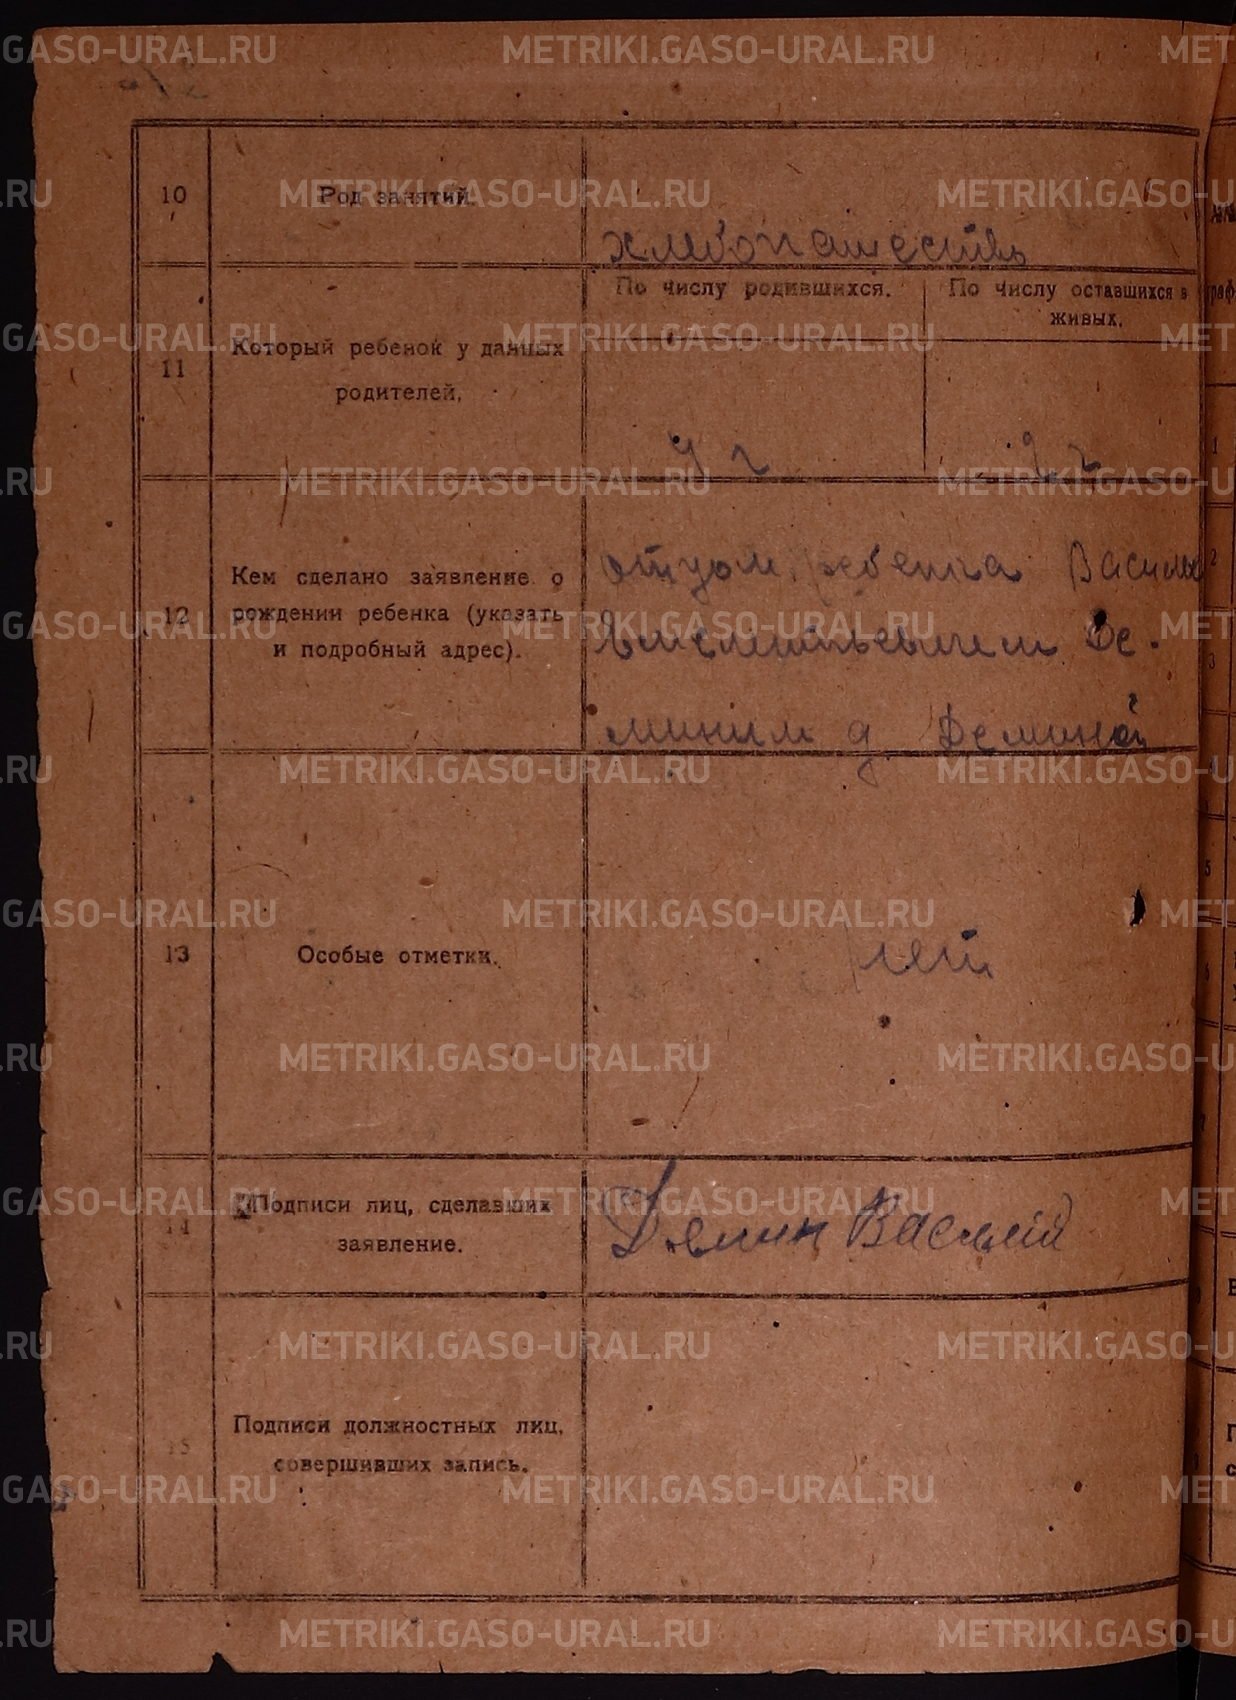 10
Род занятий.
хлебопашество
11
Который ребенок у данных
родителей.
По числу родившихся.
По числу оставшихся в
живых.
12
Кем сделано заявление о
рождении ребенка (указать
и подробный адрес).
отцом ребенка Василь
Де-
миным д. Деминой
13
Особые отметки.
нет
14
Подписи лиц, сделавших
заявление.
Демин Василий
15
Подписи должностных лиц,
совершивших запись.
METRIKI.GASO-URAL.RU